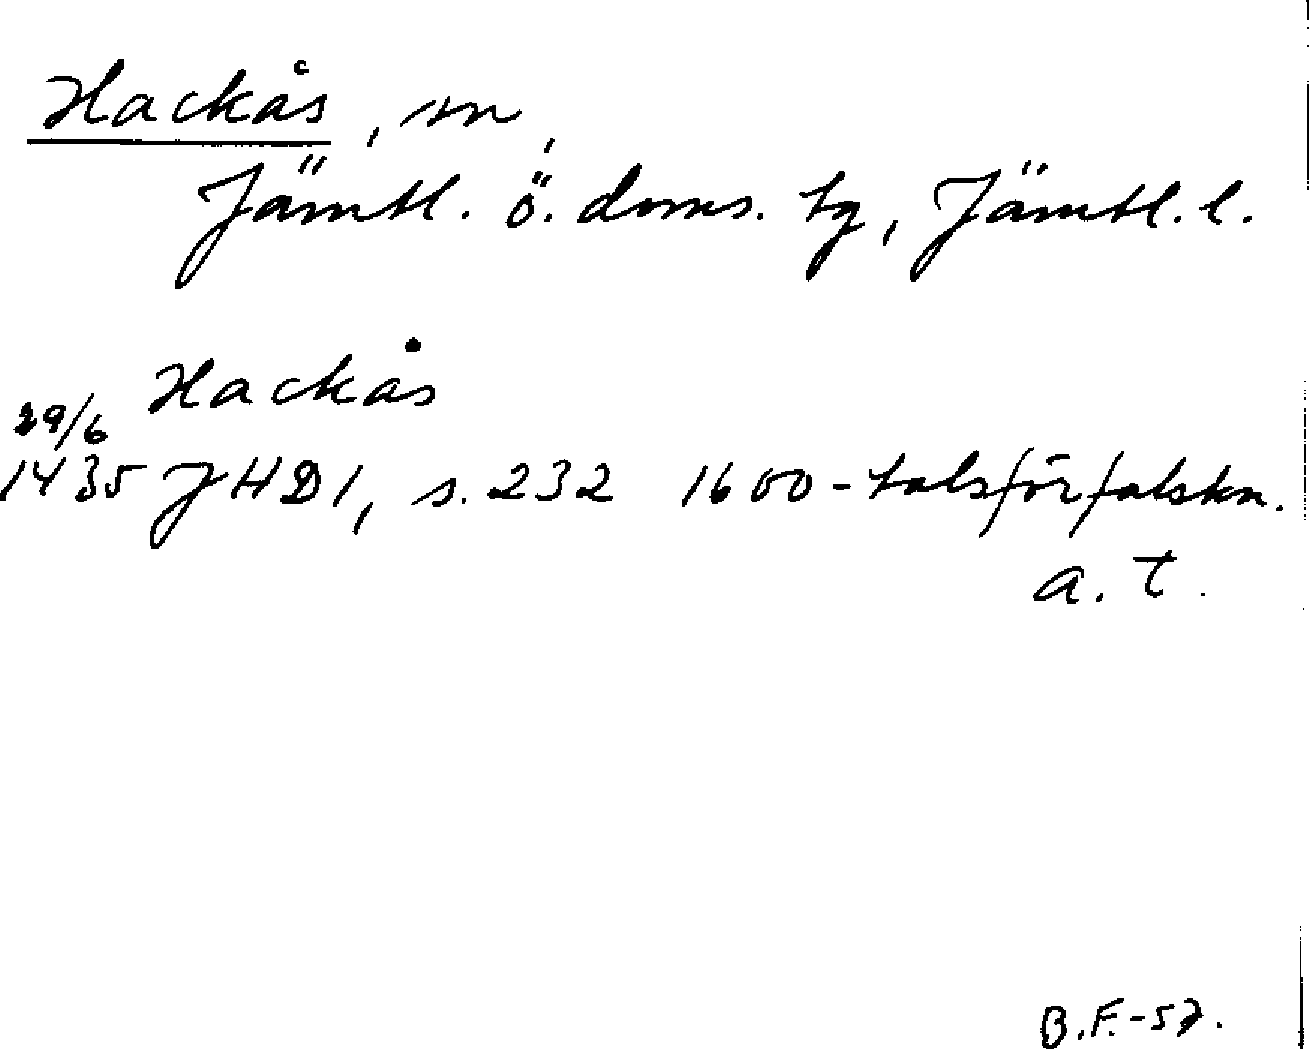 Hackås, sn,
Jämtl. ö. doms. tg, Jämtl. l.
Hackås
29/6
1435 JHD 1, s. 232 1600-talsförfalskn.
a. t.
B.F.-57.